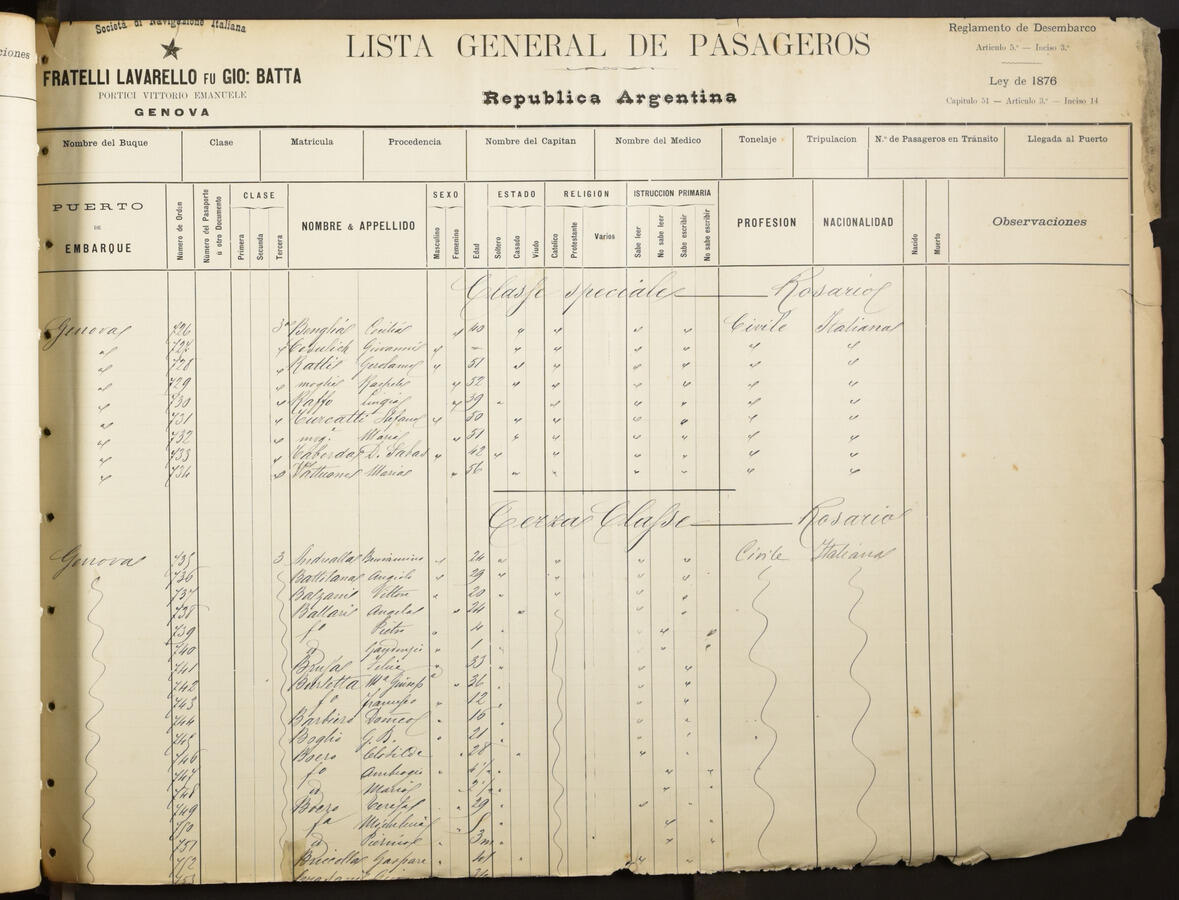 ciones
Società di Navigazione Italiana
FRATELLI LAVARELLO FU GIO: BATTA
PORTICI VITTORIO EMANUELE
GENOVA
LISTA GENERAL DE PASAGEROS
Republica Argentina
Reglamento de Desembarco
Articulo 5.º — Inciso 3.º
Ley de 1876
Capitulo 51 — Articulo 3.º — Inciso 14
Nombre del Buque Clase Matricula Procedencia Nombre del Capitan Nombre del Medico Tonelaje Tripulacion N.º de Pasageros en Tránsito Llegada al Puerto
PUERTO DE EMBARQUE
Número de Orden
Número del Pasaporte u otro Documento
CLASE
Primera Secunda Tercera
NOMBRE & APPELLIDO
SEXO
Masculino Femenino
Edad
ESTADO
Soltero Casado Viudo
RELIGION
Catolico Protestante Varios
ISTRUCCION PRIMARIA
Sabe leer No sabe leer Sabe escribir No sabe escribir
PROFESION
NACIONALIDAD
Nacido Muerto
Observaciones
Classe speciale — Rosario
Genova 726 3ª Cecilia " 40 " " " " Civile Italiana
" 727 " Giovanni " – " " " " " "
" 728 " Ratti Gerolamo " 51 " " " " " "
" 729 " moglie " 52 " " " " " "
" 730 " Raffo Luigia " 39 " " " " " "
" 731 " Turcatti Stefano " 50 " " " " " "
" 732 " mog.e Maria " 51 " " " " " "
" 733 " Taborda D. Sabas " 42 " " " " " "
" 734 " Maria " 56 " " " " " "
Terza Classe — Rosario
Genova 735 3 Beniamino " 24 " " " " Civile Italiana
736 Battilana Angelo " 29 " " " "
737 Balzani Vittore " 20 " " "
738 Ballari Angela " 24 " " "
739 fo Pietro " 4 " " "
740 " 1 " " "
741 Felice " 33 " " "
742 Barletta Mª Giusep " 36 " " "
743 fo Francesco " 12 " " "
744 Barbiero Domco " 16 " " "
745 Boglio G.B. " 21 " " "
746 Boero Clotilde " 28 " " "
747 fo Ambrogio " " " "
748 Maria " " "
749 Boero Teresa " 29 " " "
750 fa Michelina " " " "
751 3m " " "
752 Gaspare " 41 " " "
753